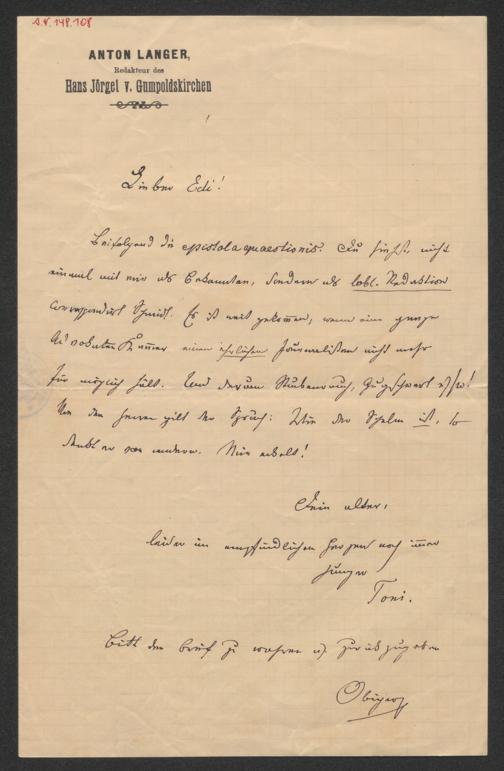 A.N. 148.108
ANTON LANGER,
Redakteur des
Hans Jörgel v. Gumpoldskirchen
Lieber Edi!
Beifolgend die epistola quaestionis. Du siehst, nicht
einmal mit mir als Bekannten, sondern als löbl. Redaktion
correspondirt Schmidt. Es ist weit gekommen, wenn eine ganze
Advokaten Kammer einen ehrlichen Journalisten nicht mehr
für möglich hält. Und darum
Von den Herren gilt der Spruch: Wie der Schelm ist, so
denkt er von andern. Mir ekelt!
Dein alter,
leider im empfindlichen Herzen noch immer
junger
Toni.
Bitte den Brief zu wahren u. zurückzugeben
Obiger